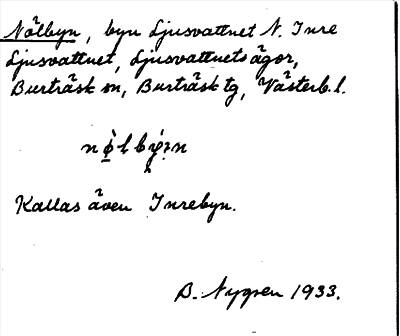 Nölbyn, byn Ljusvattnet N. Inre
Ljusvattnet, Ljusvattnets ägor,
Burträsk sn, Burträsk tg, Västerb. l.
Kallas även Inrebyn.
B. Nygren 1933.